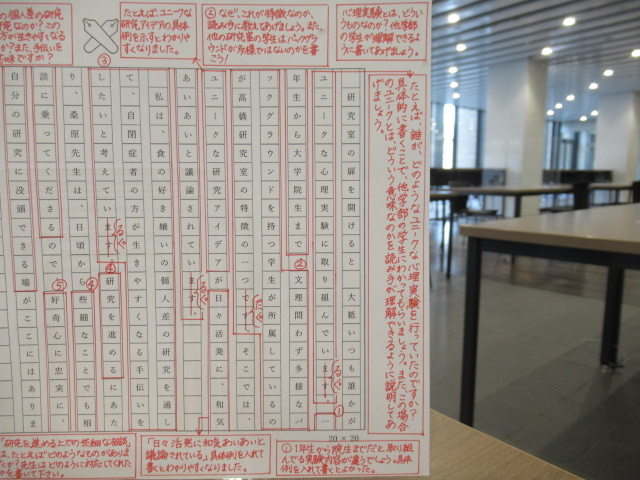 心理実験とは、どういうものなのか？他学部の学生が理解できるように書いてあげましょう。
②なぜ、これが特徴なのか、読み手に教えてあげましょう。また、他の研究室の学生はバックグラウンドが多様ではないのかを書こう！
たとえば、ユニークな研究アイデアの具体例を示すとわかりやすくなりました。
③
の個人差の研究
究なのか？この
方が生きやすくなる
か？また、手伝いを
意味ですか？
たとえば、誰が、どのようなユニークな心理実験を行っていたのですか？
具体的に書くことで、他学部の学生にわかってもらいましょう。また、この場合
のユニークとは、どういう意味なのかを読み手が理解できるように説明してあ
げましょう。
研究室の扉を開けると　大抵いつも誰かが
ユニークな心理実験に取り組んでいます。一
年生から大学院生まで　文理問わず多様なバ
ックグラウンドを持つ学生が所属しているの
が高橋研究室の特徴の一つです。そこでは、
ユニークな研究アイデアが日々活発に、和気
あいあいと議論されています。
私は、食の好き嫌いの個人差の研究を通し
て、自閉症者の方が生きやすくなる手伝いを
したいと考えています。研究を進めるにあた
り、桑原先生は、日頃から些細なことでも相
談に乗ってくださるので、好奇心に忠実に、
自分の研究に没頭できる場がここにはありま
①
②
④
④
⑤
20×20
①1年生から院生までだと、取り組んでる実験内容が違うでしょう。具体例を入れて書くとよかった。
「日々活発に和気あいあいと議論されている」具体例を入れて書くとわかりやすくなりました。
「研究を進める上での些細な相談」は、たとえばどのようなものがありましたか？先生はどのように対応してくれたかを書いて下さい。